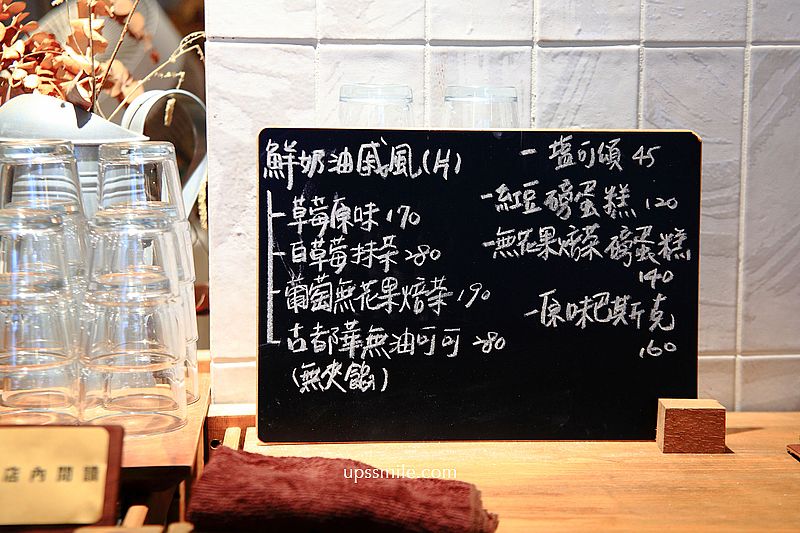 鮮奶油戚風(片)
草莓原味 170
白草莓抹茶 280
葡萄無花果焙茶 190
古都華無油可可 280
(無夾餡)
- 塩可頌 45
- 紅豆磅蛋糕 120
- 無花果焙茶磅蛋糕
140
- 原味巴斯克
160
店內閱讀
upssmile.com